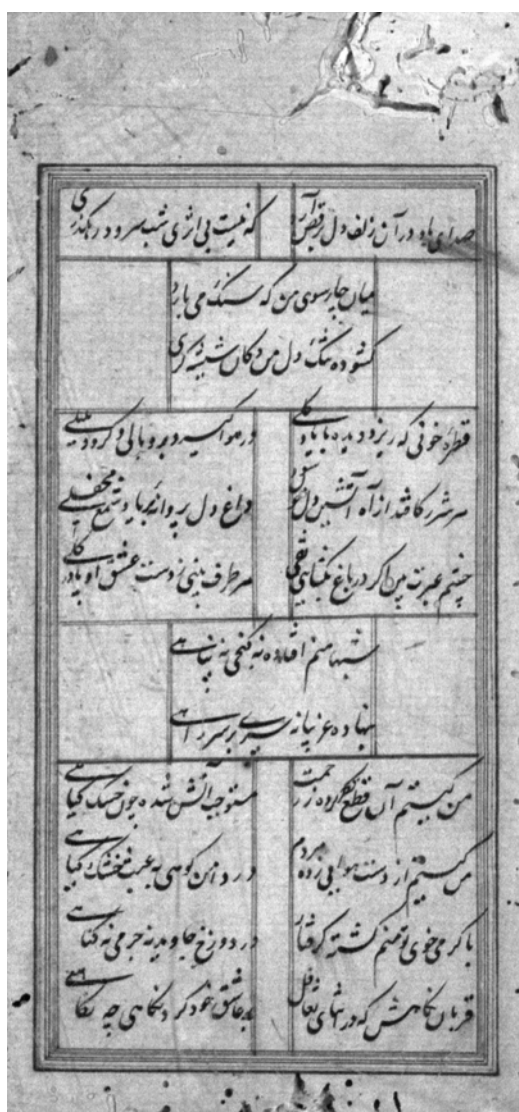 صدای باد در آن زلف دل برقص آرد
که نیست بی اثری شب سرود رهگذری
میان چارسوی من که سنگ می بارد
گشوده تنگ دل من دکان شیشه گری
قطره خونی که ریزد دیده با یاد گلی
در هوا گیرد پر و بالی و گردد بلبلی
هر شرر کافتد از آه آتشین دل
داغ دل پروانه بر یاد شمع محفلی
چشم عبرت بین اگر در باغ بگشایی
هر طرف بینی ز دست عشق او پا در گلی
شبها منم افتاده به کنجی به پناهی
بنهاده غریبانه سری بر سر راهی
من کیستم آن قطع نظر کرده ز رحمت
مستوجب آتش شده چون خشک گیاهی
من کیستم از دست هوایی زده مردم
در دامن کوهی به عبث خشک گیاهی
با گرمی خوی تو منم گشته گرفتار
در دوزخ جاوید نه جرمی نه گناهی
قربان نگاهش که در اثنای تغافل
بر عاشق خود کرد نگاهی چه نگاهی